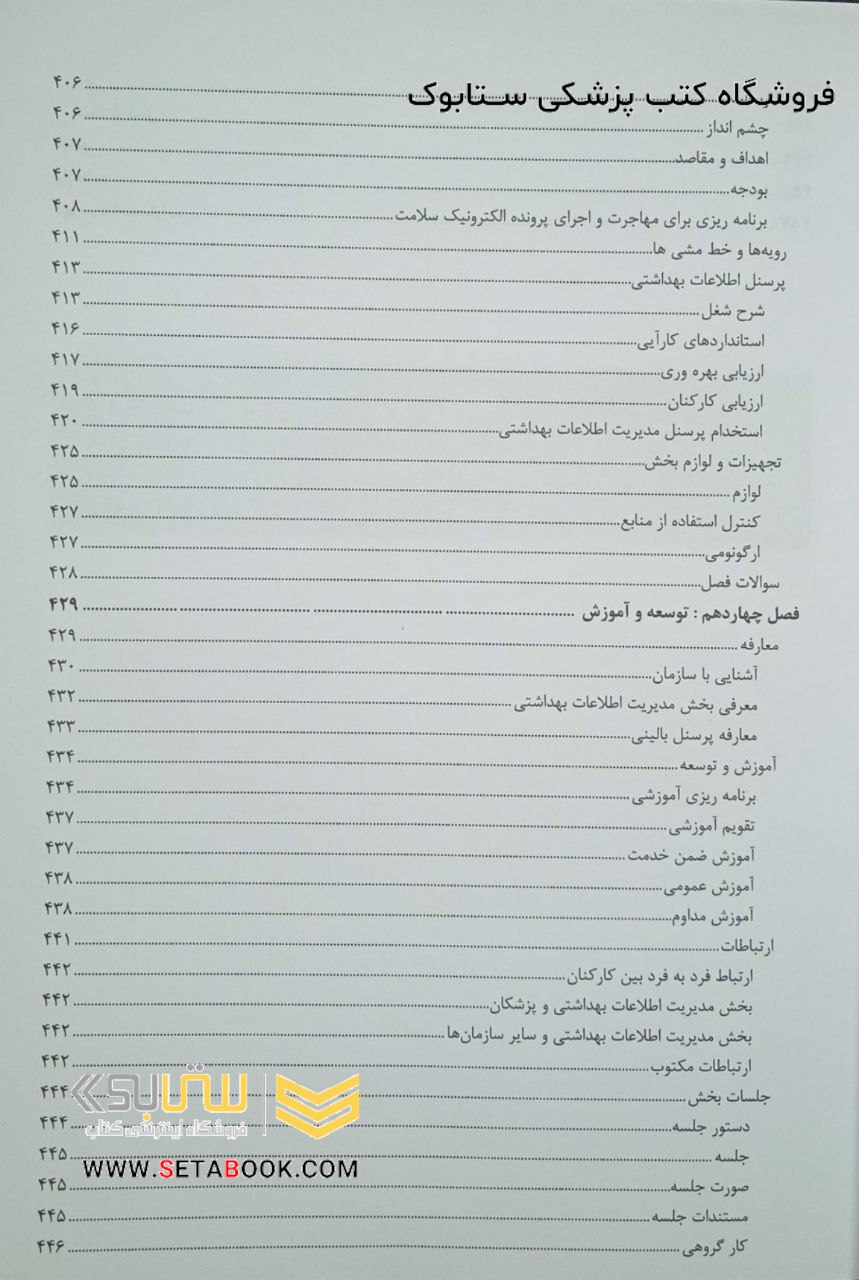 فروشگاه کتب پزشکی ستابوک
۴۰۶
چشم انداز ۴۰۶
اهداف و مقاصد ۴۰۷
بودجه ۴۰۷
برنامه ریزی برای مهاجرت و اجرای پرونده الکترونیک سلامت ۴۰۸
رویه‌ها و خط مشی ها ۴۱۱
پرسنل اطلاعات بهداشتی ۴۱۳
شرح شغل ۴۱۳
استانداردهای کارآیی ۴۱۶
ارزیابی بهره وری ۴۱۷
ارزیابی کارکنان ۴۱۹
استخدام پرسنل مدیریت اطلاعات بهداشتی ۴۲۰
تجهیزات و لوازم بخش ۴۲۵
لوازم ۴۲۵
کنترل استفاده از منابع ۴۲۷
ارگونومی ۴۲۷
سوالات فصل ۴۲۸
فصل چهاردهم : توسعه و آموزش ۴۲۹
معارفه ۴۲۹
آشنایی با سازمان ۴۳۰
معرفی بخش مدیریت اطلاعات بهداشتی ۴۳۲
معارفه پرسنل بالینی ۴۳۳
آموزش و توسعه ۴۳۴
برنامه ریزی آموزشی ۴۳۴
تقویم آموزشی ۴۳۷
آموزش ضمن خدمت ۴۳۷
آموزش عمومی ۴۳۸
آموزش مداوم ۴۳۸
ارتباطات ۴۴۱
ارتباط فرد به فرد بین کارکنان ۴۴۲
بخش مدیریت اطلاعات بهداشتی و پزشکان ۴۴۲
بخش مدیریت اطلاعات بهداشتی و سایر سازمان‌ها ۴۴۲
ارتباطات مکتوب ۴۴۲
جلسات بخش ۴۴۴
دستور جلسه ۴۴۴
جلسه ۴۴۵
صورت جلسه ۴۴۵
مستندات جلسه ۴۴۵
کار گروهی ۴۴۶
فروشگاه اینترنتی کتاب
WWW.SETABOOK.COM